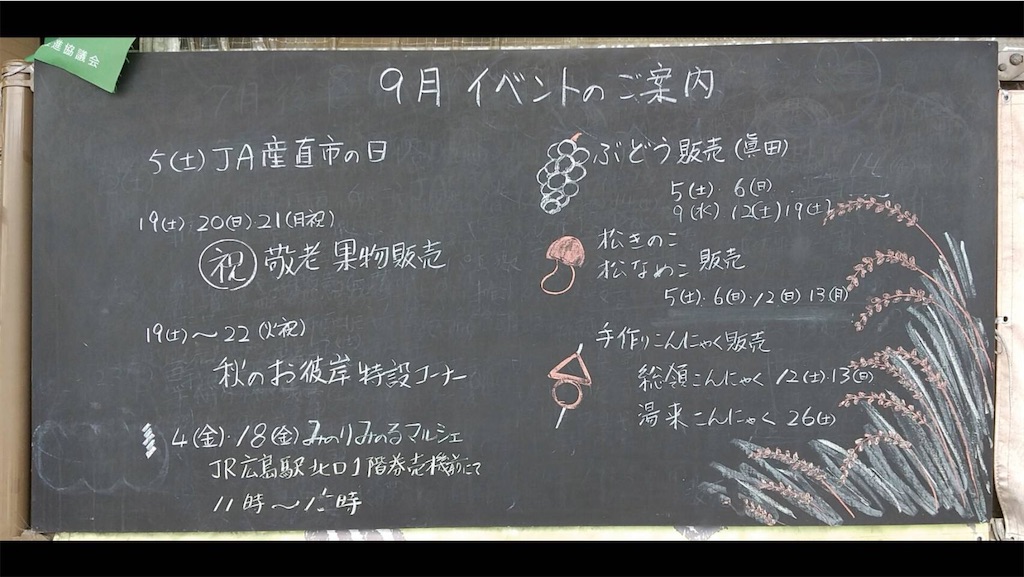 進協議会
9月 イベントのご案内
5(土) JA産直市の日
19(土)・20(日)・21(月祝)
祝 敬老 果物販売
19(土)〜22(火祝)
秋のお彼岸 特設コーナー
4(金)・18(金) みのりみのるマルシェ
JR広島駅 北口1階券売機前にて
11時〜15時
ぶどう販売(眞田)
5(土)・6(日)
9(水) 12(土) 19(土)
松きのこ
松なめこ 販売
5(土)・6(日)・12(日) 13(月)
手作りこんにゃく販売
総領こんにゃく 12(土)・13(日)
湯来こんにゃく 26(土)